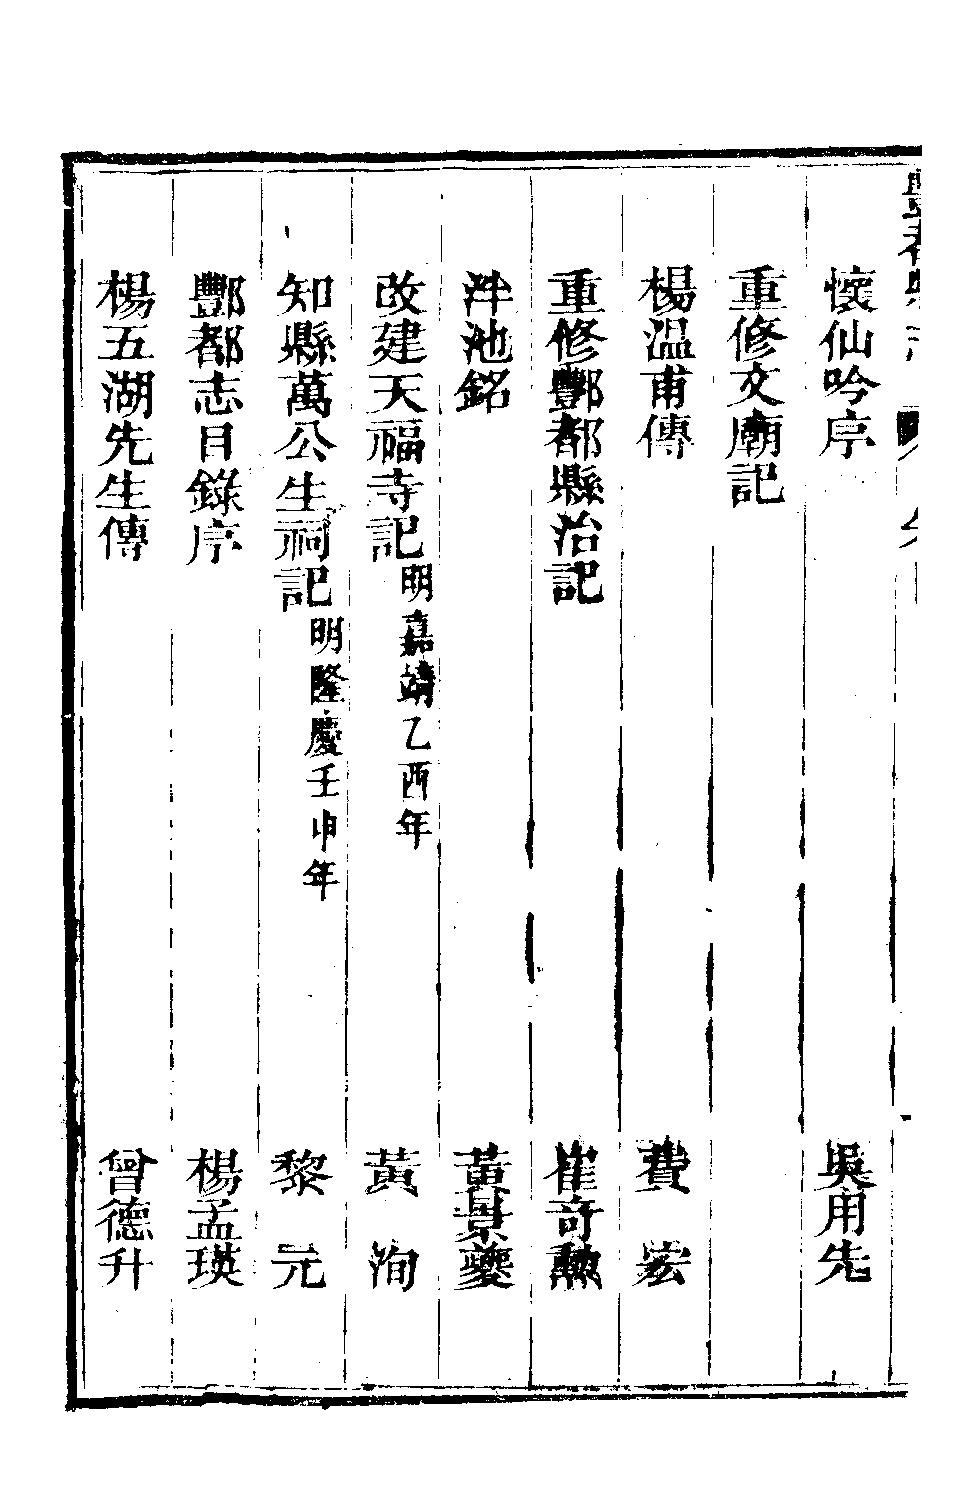 懷仙吟序 吳用先
重修文廟記
楊溫甫傳 費宏
重修酆都縣治記 崔奇勲
泮池銘 黃景夔
改建天福寺記明嘉靖乙酉年 黃洵
知縣萬公生祠記明隆慶壬申年 黎元
酆都志目錄序 楊孟瑛
楊五湖先生傳 曾德升